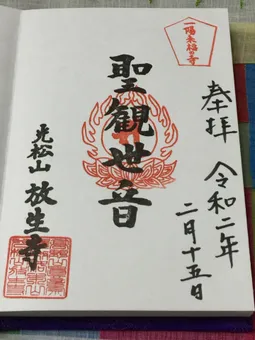 一陽来福の寺
奉拝
令和二年
二月十五日
聖観世音
光松山
放生寺